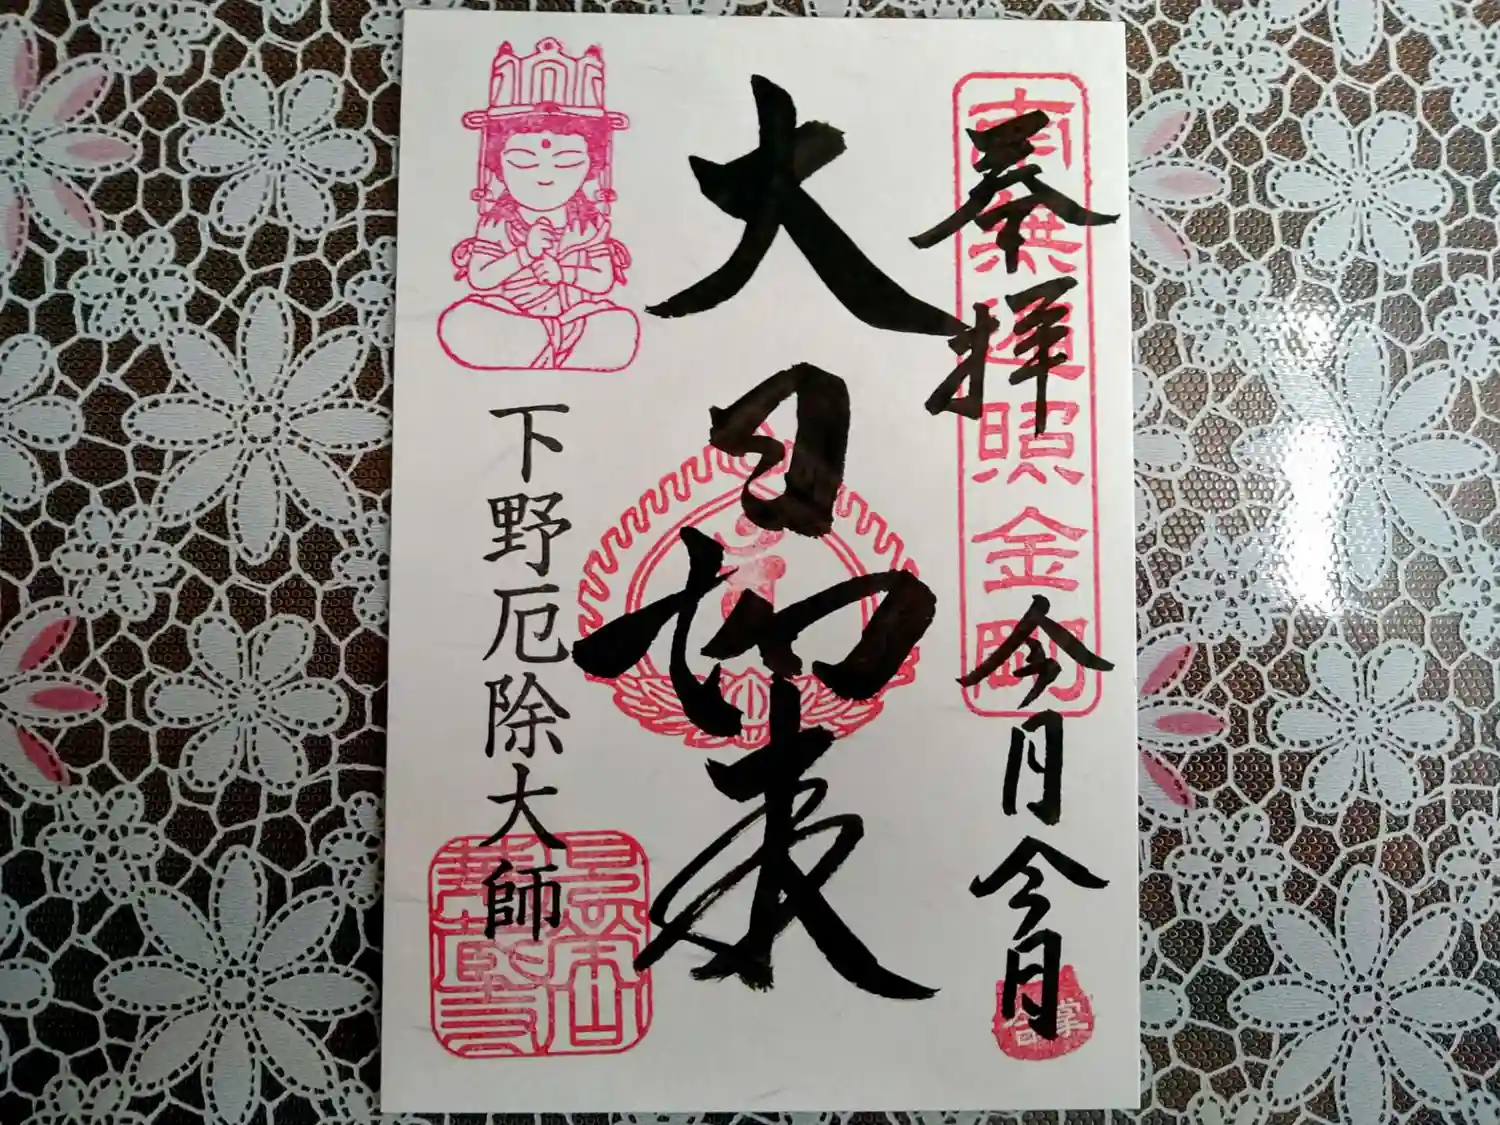 奉拝
今月今日
南無遍照金剛
大日如来
下野厄除大師
華蔵寺
合掌